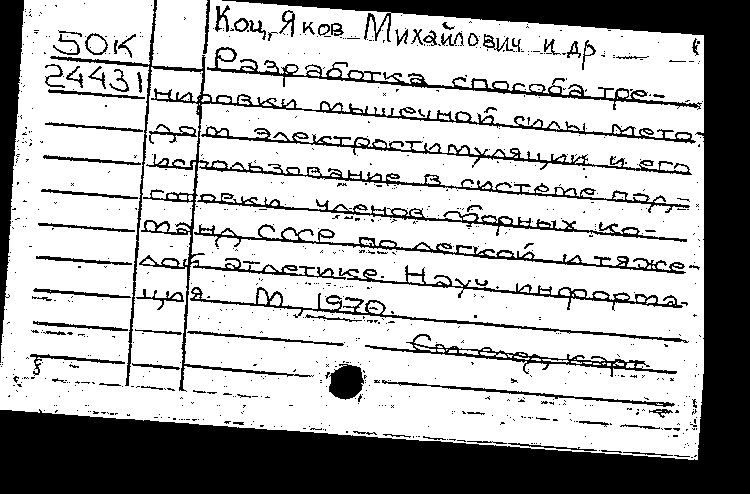 Коц, Яков Михайлович и др.
50К
24431
Разработка способа тре-
нировки мышечной силы мето-
дом электростимуляции и его
использование в системе под-
готовки членов сборных ко-
манд СССР по легкой и тяже-
лой атлетике. Науч. информа-
ция. М., 1970.
См. след. карт.